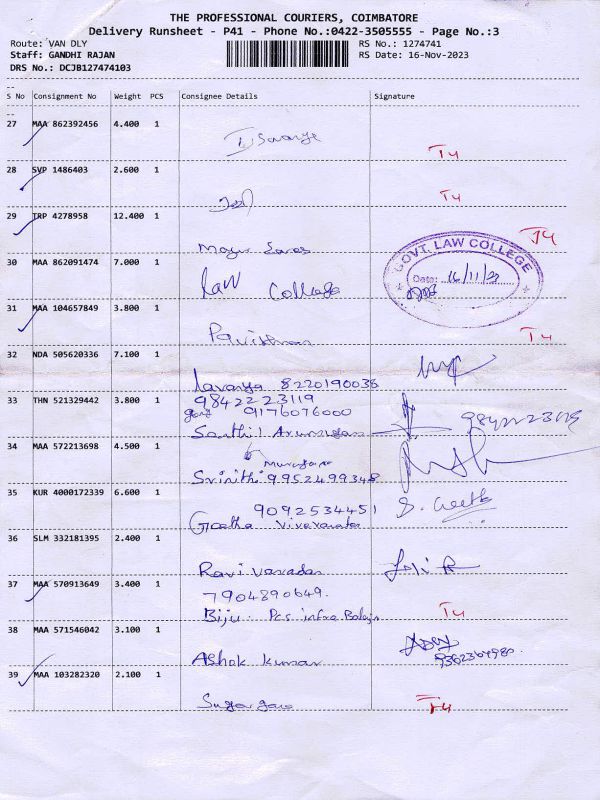 THE PROFESSIONAL COURIERS, COIMBATORE
Delivery Runsheet - P41 - Phone No.:0422-3505555 - Page No.:3
Route: VAN DLY RS No.: 1274741
Staff: GANDHI RAJAN RS Date: 16-Nov-2023
DRS No.: DCJB127474103
S No Consignment No Weight PCS Consignee Details Signature
27 MAA 862392456 4.400 1
T4
28 SVP 1486403 2.600 1
T4
29 TRP 4278958 12.400 1
T4
GOVT. LAW COLLEGE
30 MAA 862091474 7.000 1
Law College
Date: 16/11/23
31 MAA 104657849 3.800 1
T4
32 NDA 505620336 7.100 1
Lavanya 8220190036
33 THN 521329442 3.800 1 9842223119
9176076000 9842223119
Senthil Arumugam
34 MAA 572213698 4.500 1
Murugan
Srinithi 9952499348
35 KUR 4000172339 6.600 1
9092534451 S. Geetha
Geetha
36 SLM 332181395 2.400 1
Ravi Varadan
37 MAA 570913649 3.400 1 7904890649.
Biju. Pcs infra Balaji T4
38 MAA 571546042 3.100 1
Ashok Kumar
39 MAA 103282320 2.100 1
T4